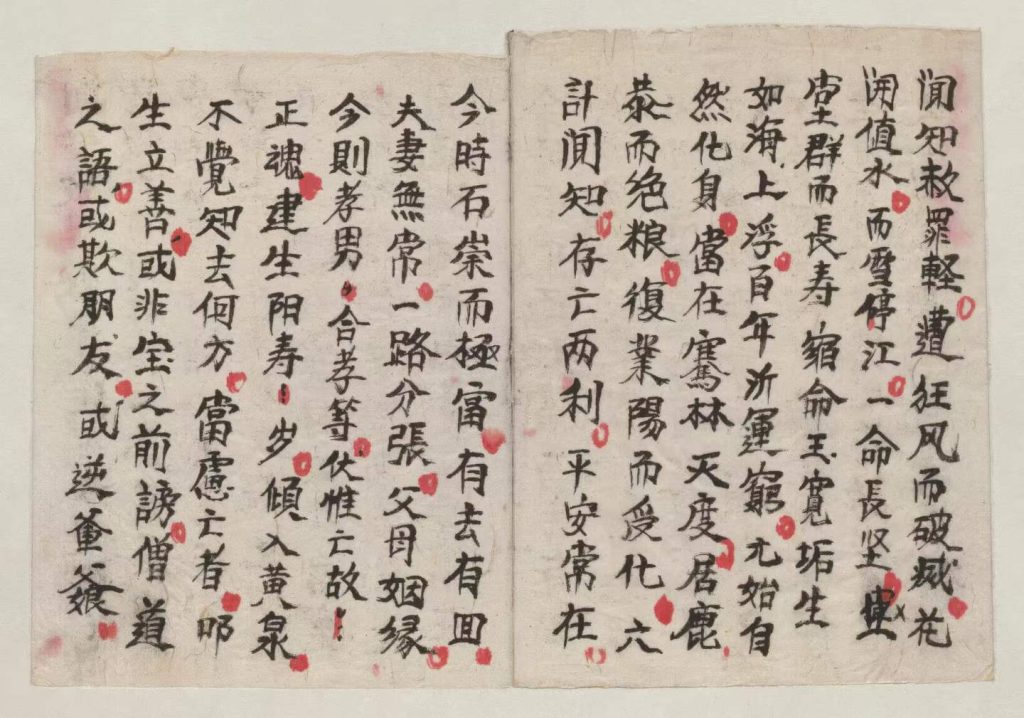 闻知赦罪軽遭狂风而破滅花
開值水而雪停江一命長坚
堂群而長寿宿命玉寬垢生
如海上浮百年沂運窮尢始自
然化身當在騫林灭度居鹿
恭而绝粮復業陽而受化六
計闻知存亡两利平安常在
今時石崇而極富有去有回
夫妻無常一路分張父母姻缘
今則孝男合孝等伏惟亡故
正魂建生阳寿岁傾入黄泉
不覺知去何方當慮亡者
生立善或非宝之前謗僧道
之語或欺朋友或逆爹娘